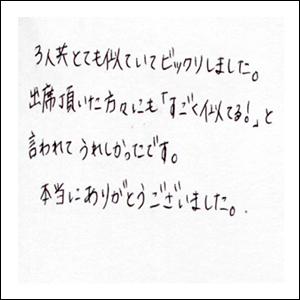 3人共とても似ていてビックリしました。
出席頂いた方々にも「すごく似てる!」と
言われてうれしかったです。
本当にありがとうございました。